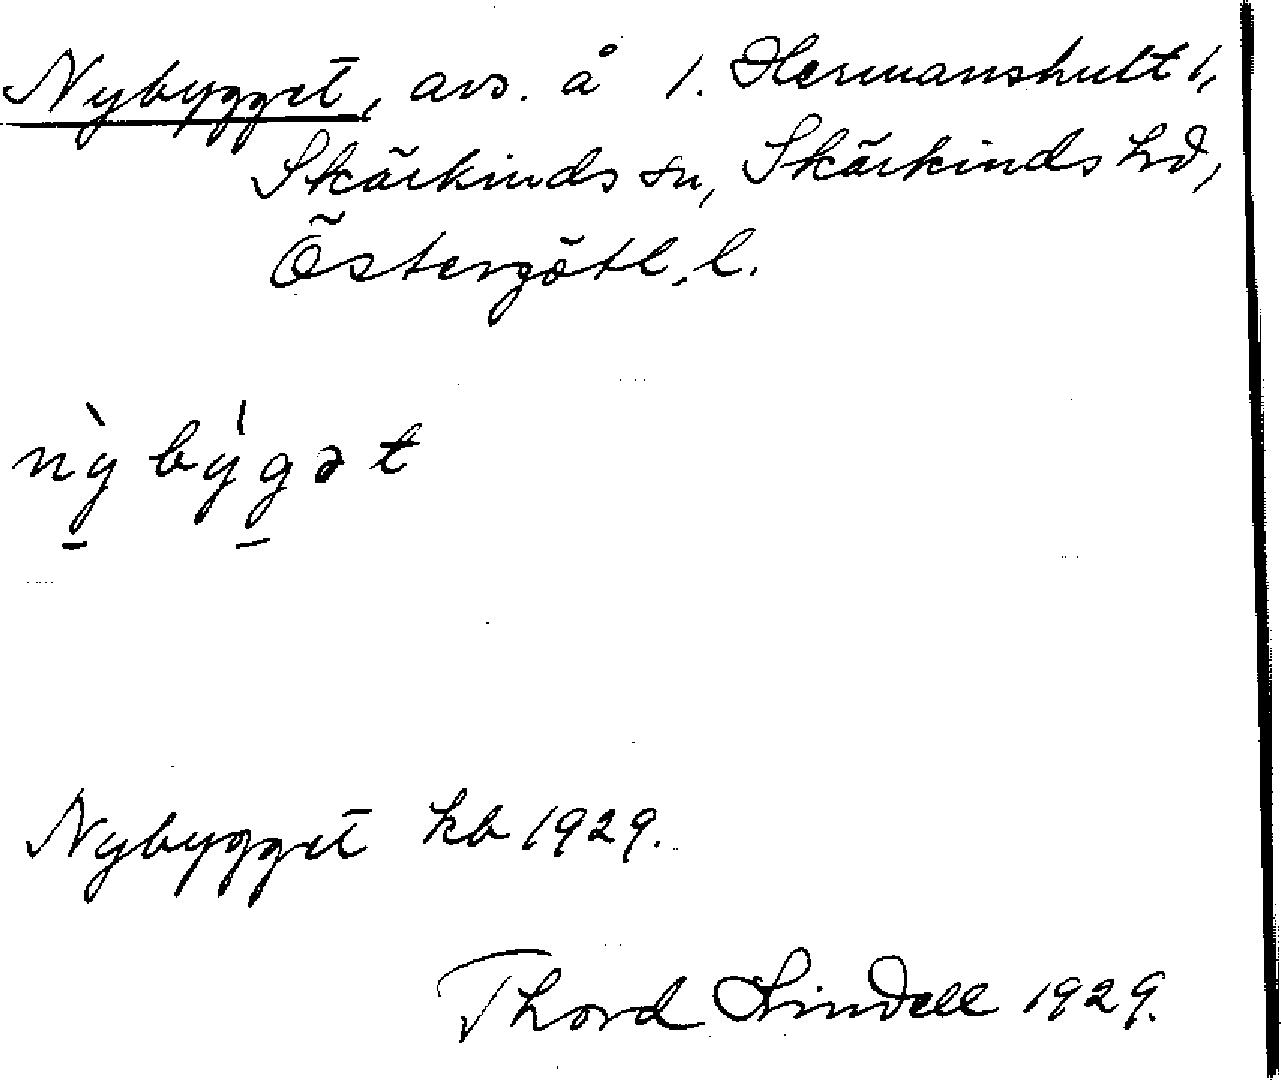 Nybygget, avs. å 1. Hermanshult 1,
Skärkinds sn, Skärkinds hd,
Östergötl. l.
nỳby̍gət
Nybygget kb 1929.
Thord Lindell 1929.